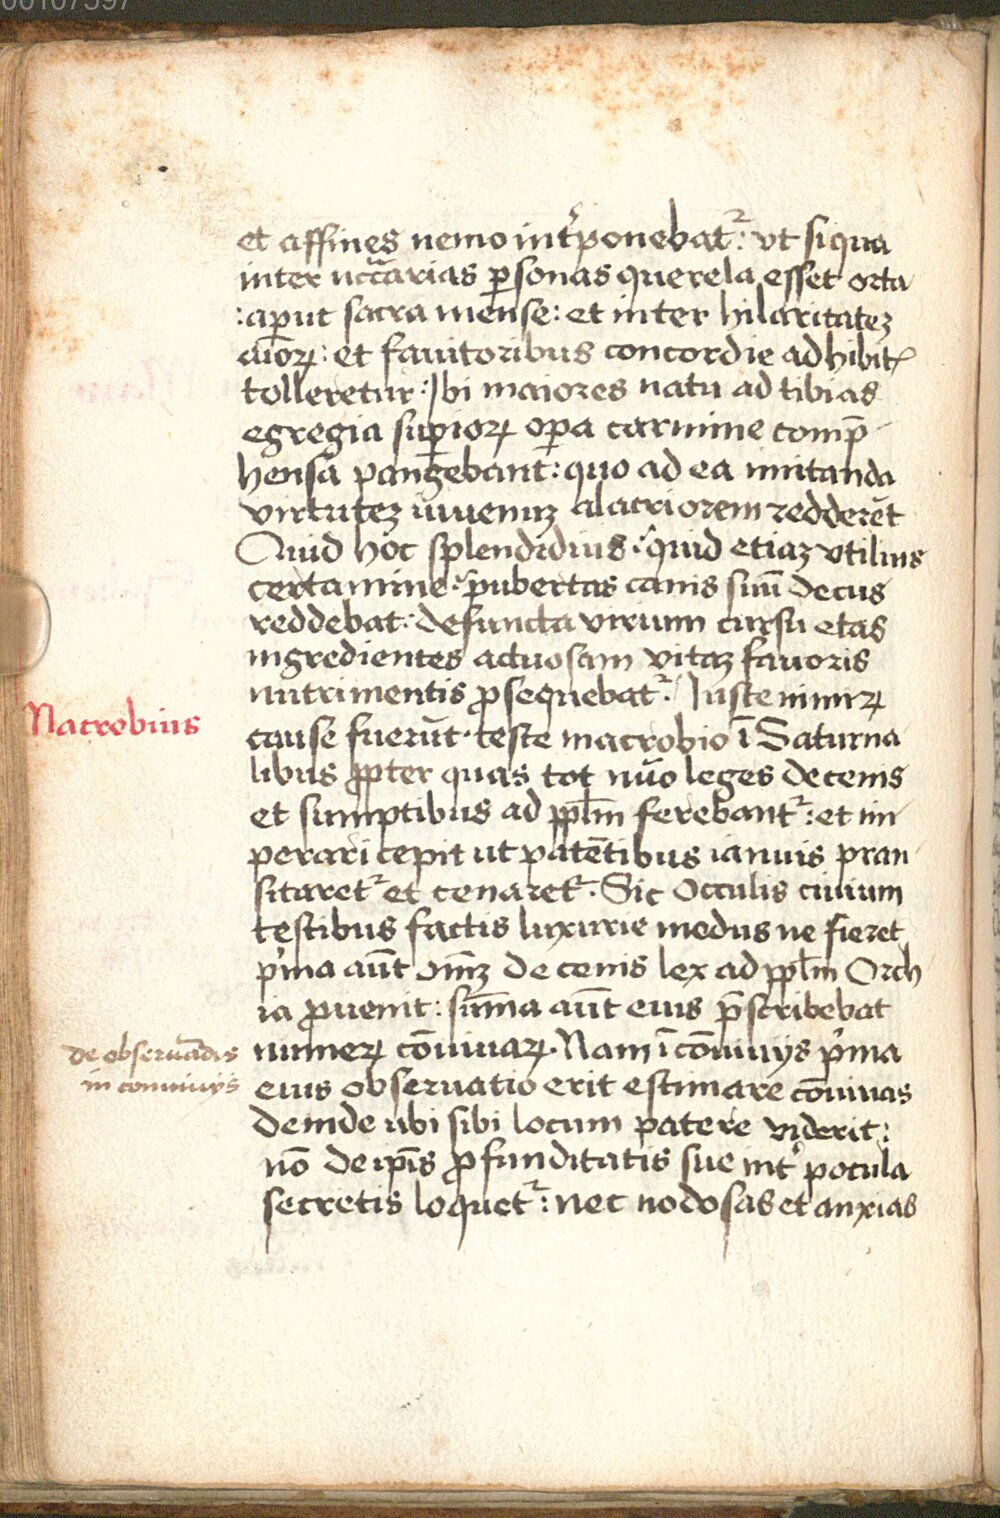 et affines nemo int̕ponebatᷣ: vt si qua
inter nc̄carias ꝑsonas querela esset orta
:apud sacra mense: et inter hilaritatez
aīorꝝ: et fauitoribus concordie adhibit̕
tolleretur: Ibi maiores natu ad tibias
egregia suꝑiorꝝ oꝑa carmine comp̄
hensa pangebant: quo ad ea imitanda
virtutez iuuentutez alacriorem redderēt
Quid hoc splendidius: quid etiaz vtilius
certamine: pubertas canis suū decus
reddebat: defuncta virium cursu etas
ingredientes actuosam vitaz fauoris
nutrimentis ꝓsequebatᷣ. Iuste nimirꝝ
Macrobius
cause fuerūt teste macrobio ī Saturna
libus ꝓpter quas tot nūo leges de cenis
et sumptibus ad pplm̄ ferebantᷣ: et im
perari cepit ut patētibus ianuis pran
sitaretᷣ et cenaretᷣ. Sic occulis ciuium
testibus factis luxurie modus ne fieret
p̕ma aūt oīm̄z de cenis lex ad pplm̄ Orch
ia ꝓuenit: sum̄a aūt eius p̄scribebat
de obseruādis
in conuiuijs
numerꝝ cōuiuarꝝ. Nam ī cōuiuijs p̕ma
eius obseruatio erit estimare cōuiuas
deinde ubi sibi locum patere viderit:
nō de ipīs ꝓfunditatis sue int̕ pocula
secretis loquetᷣ: nec nodosas et anxias